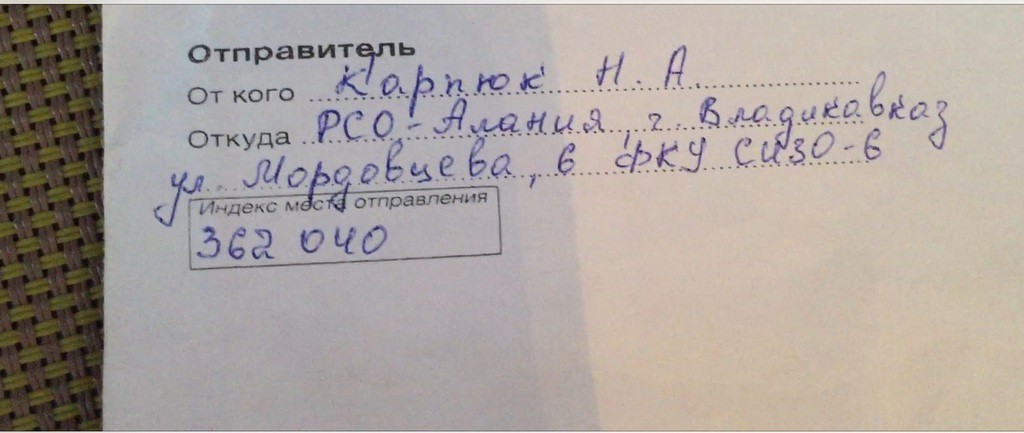 Отправитель
От кого Карпюк Н. А.
Откуда РСО-Алания, г. Владикавказ
ул. Мордовцева, 6 фку СИЗО-6
Индекс места отправления
362 040